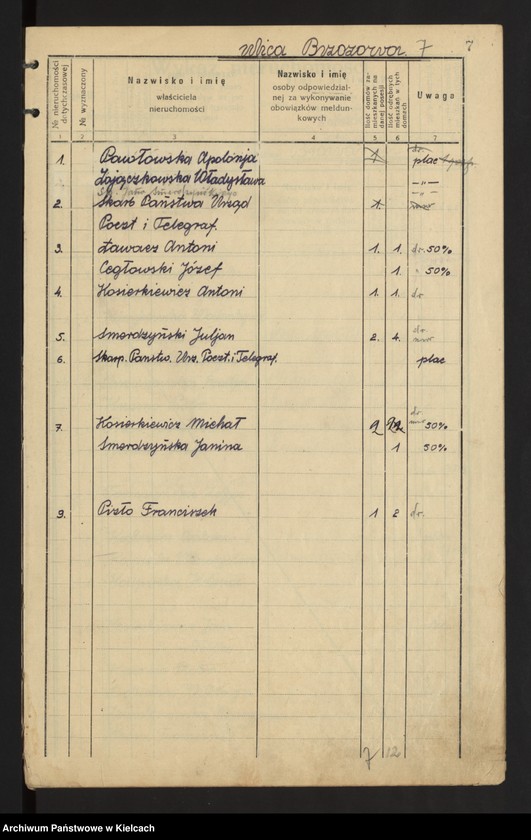 ulica Brzozowa 7 7
№ nieruchomości dotychczasowej
№ wyznaczony
Nazwisko i imię
właściciela
nieruchomości
Nazwisko i imię
osoby odpowiedzial-
nej za wykonywanie
obowiązków meldun-
kowych
Ilość domów za-
mieszkanych na
danej posesji
Ilość odrębnych
mieszkań w tych
domach
Uwaga
1 2 3 4 5 6 7
1. Pawłowska Apolonja 1 dr. plac
Zajączkowska Władysława —"—
2. Skarb Państwa Urząd 1.
Poczt i Telegraf.
3. Ławacz Antoni 1. 1. dr. 50%
Cegłowski Józef 1. " 50%
4. Kosierkiewicz Antoni 1. 1. dr
5. Smerdzyński Juljan 2. 4. dr. mur
6. Skarp. Państw. Urz. Poczt. i Telegraf. plac
7. Kosierkiewicz Michał 2 2 dr. mur 50%
Smerdzyńska Janina 1 50%
9. Pizło Franciszek 1 2 dr.
7 12
Archiwum Państwowe w Kielcach